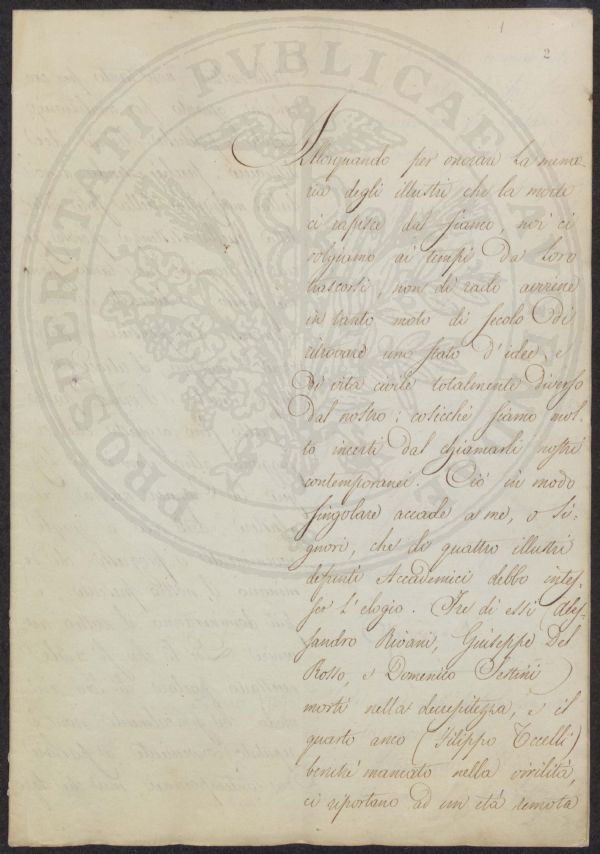 1
2
Allorquando per onorare la memo-
ria degli illustri che la morte
ci rapisce dal fianco, noi ci
volgiamo ai tempi da loro
trascorsi, non di rado avviene
in tanto moto di secolo di
ritrovare uno stato d'idee, e
di vita civile totalmente diverso
dal nostro; cosicchè siamo mol-
to incerti dal chiamarli nostri
contemporanei. Ciò in modo
singolare accade a me, o Si-
gnori, che di quattro illustri
defunti Accademici debbo intes-
ser l'elogio. Tre di essi (Ales-
sandro Rivani, Giuseppe Del
Rosso, e Domenico Sestini)
morti nella decrepitezza, e il
quarto anco (Filippo Uccelli)
benchè mancato nella virilità,
ci riportano ad un'età remota
PROSPERITATI PVBLICAE AVGENDAE